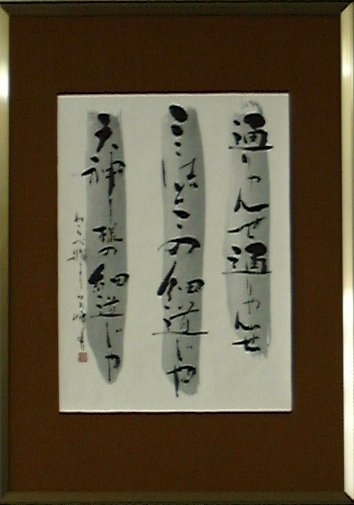 通りゃんせ通りゃんせ
ここはどこの細道じゃ
天神様の細道じゃ